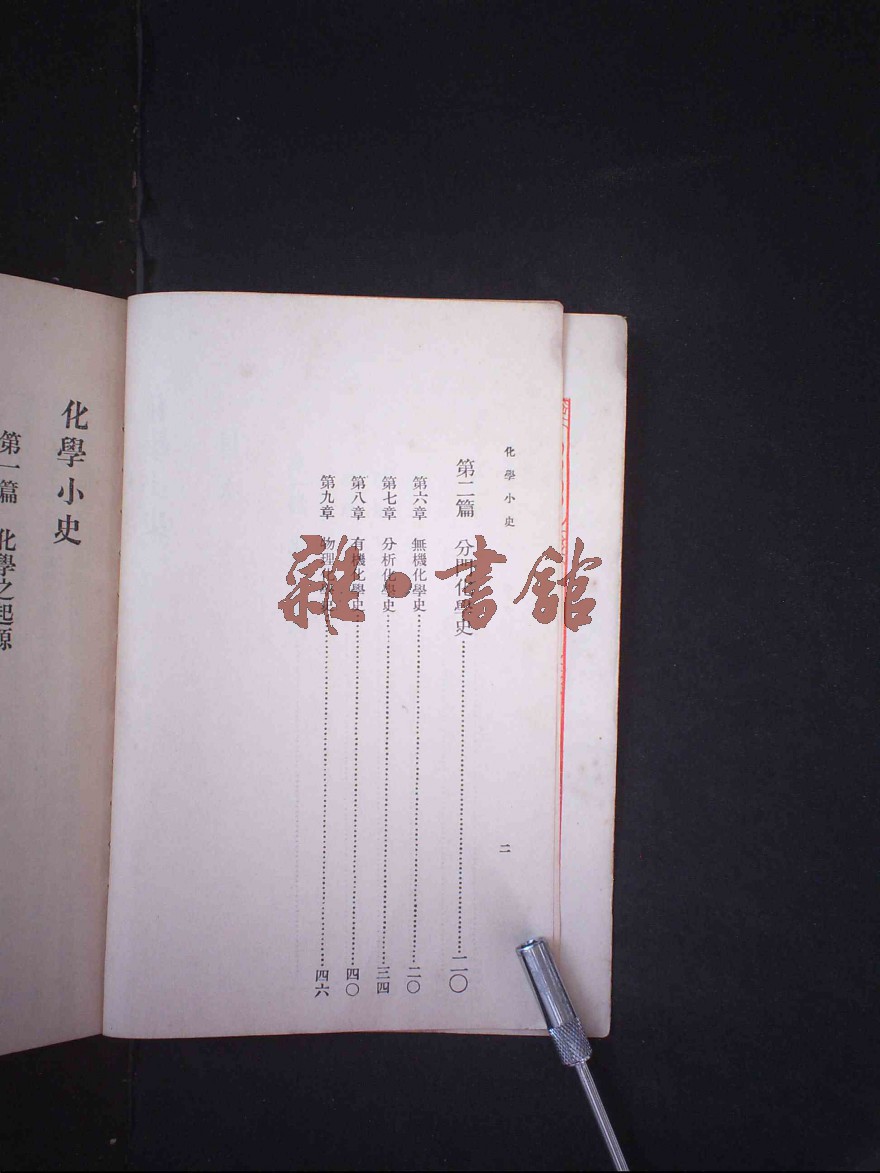 化學小史
二
第二篇 分門化學史……二〇
第六章 無機化學史……二〇
第七章 分析化學史……三四
第八章 有機化學史……四〇
第九章 物理化學史……四六
化學小史
第一篇 化學之起源
雜·書館